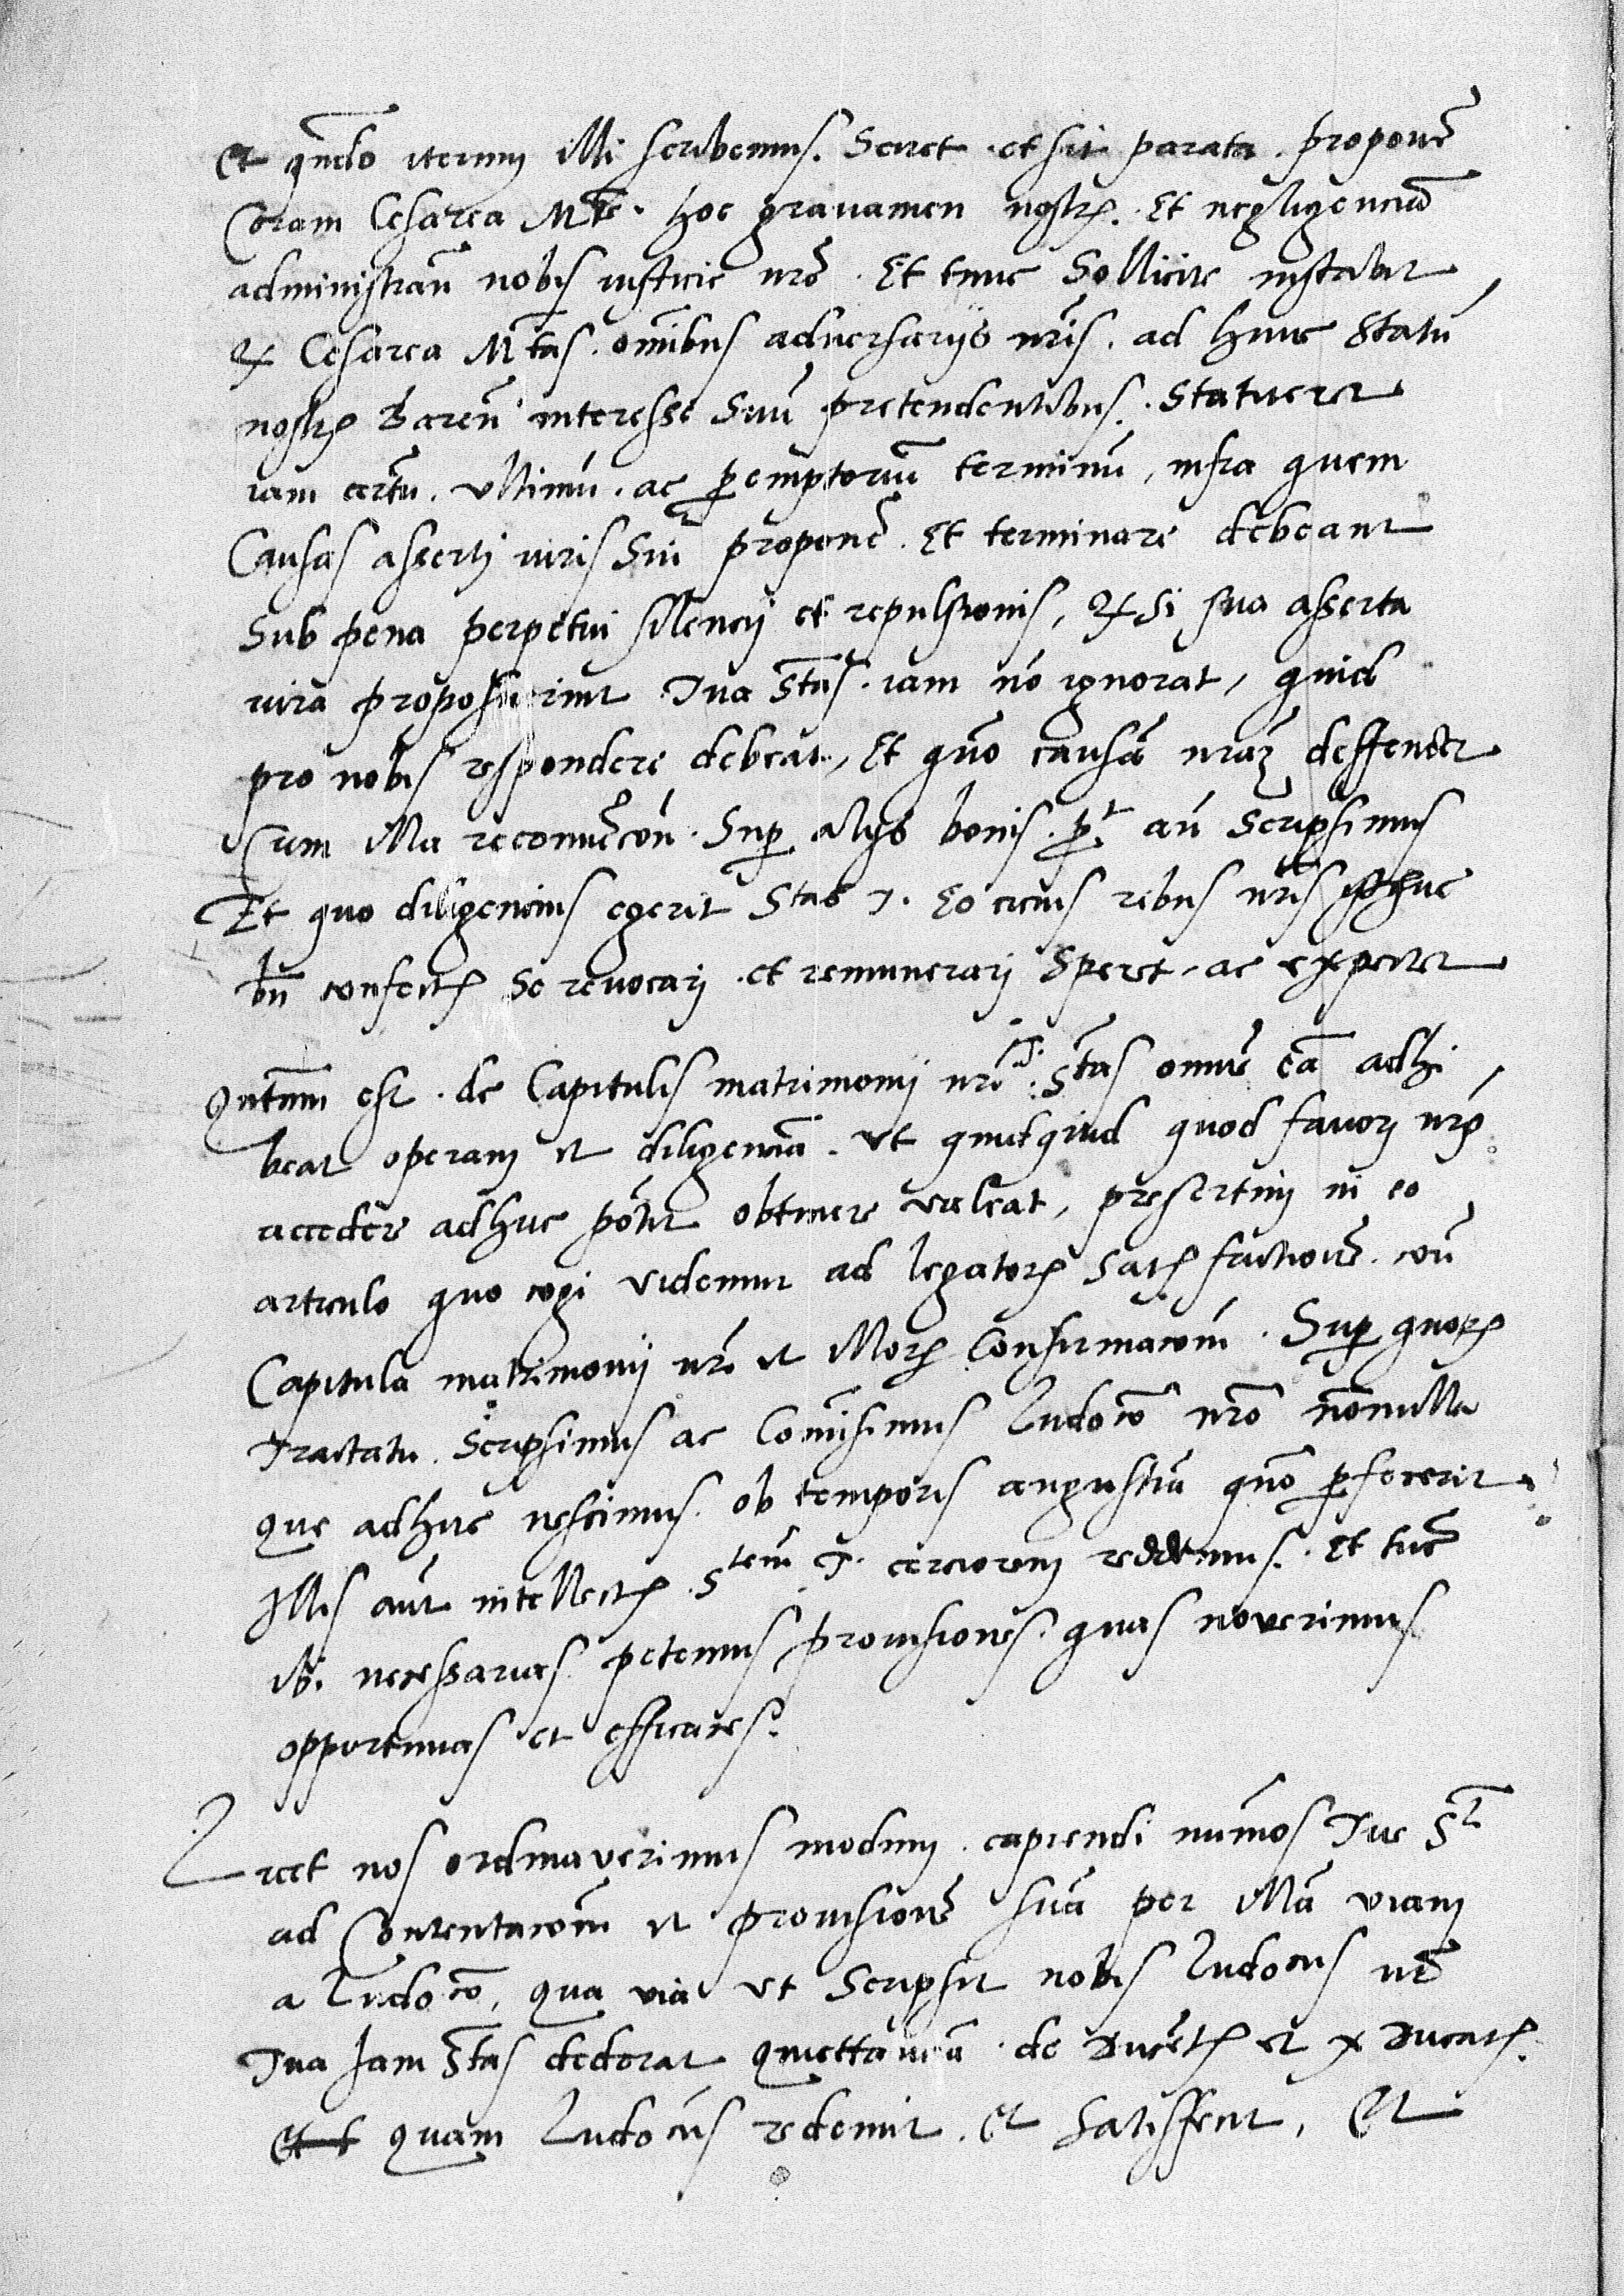 Et qn̄do iterum illi scribemus. Sciret et sit parata proponē
Coram Cesarea Mte. hoc grauamen nostrum. Et negligenciā
administrań nobis iusticie nrē. Et tunc Sollicite instabit
ut Cesarea Mtas. omībus aduersarijs nrīs. ad hunc Statū
nostrum Bareñ interesse Suū pretendentibus. Statueret
iam certū. vltimū. ac peremptoriū terminū, infra quem
Causas asserti iuris Sui proponē. Et terminare debeant
Sub pena perpetui silencij et repulsionis, Et si sua asserta
iura proposuerint Tua Stas. iam nō ignorat, quid
pro nobis respondere debeat, Et quō causā nrām deffendet
Cum illa reconuencoē. Sup alijs bonis. put an Scripsimus
Et quo diligencius egerit Stas T. Eo cicius rebus nrīs
bn confectis Se reuocarj et remunerarj Speret. ac expectet
Quantum est. de Capitulis matrimonij nrī T. Stas omnē eā adhi
beat operam et diligenciā. vt quidquid quod fauorj nrō
accedere adhuc pōtit obtinere valeat, presertim in eo
articulo quo cogi videmur ad legatorum Satisfactionē. coñ
Capitula matrimonij nrī et illorum Confirmacoēm. Sup quorum
Tractatu. Scripsimus ac Comisimus Ludoco nrō nōnulla
que adhuc nescimus. ob temporis angustiā quō perfecerit.
Illis aut intellectis Stem T. cerciorem reddemus. Et tunc
ibi necessarias petemus prouisiones. quas nouerimus
opportunas et efficaces.
Licet nos ordinauerimus modum capiendi nūmos Tue Sti
ad Contentacoēm et prouisionē suā per illā viam
a Ludoco, qua via vt Scripsit nobis Ludocus nr
Tua Jam Stas dederat quettanciā de Ducētis et x Ducatis.
quam Ludocus redemit. et Satisfecit, Et